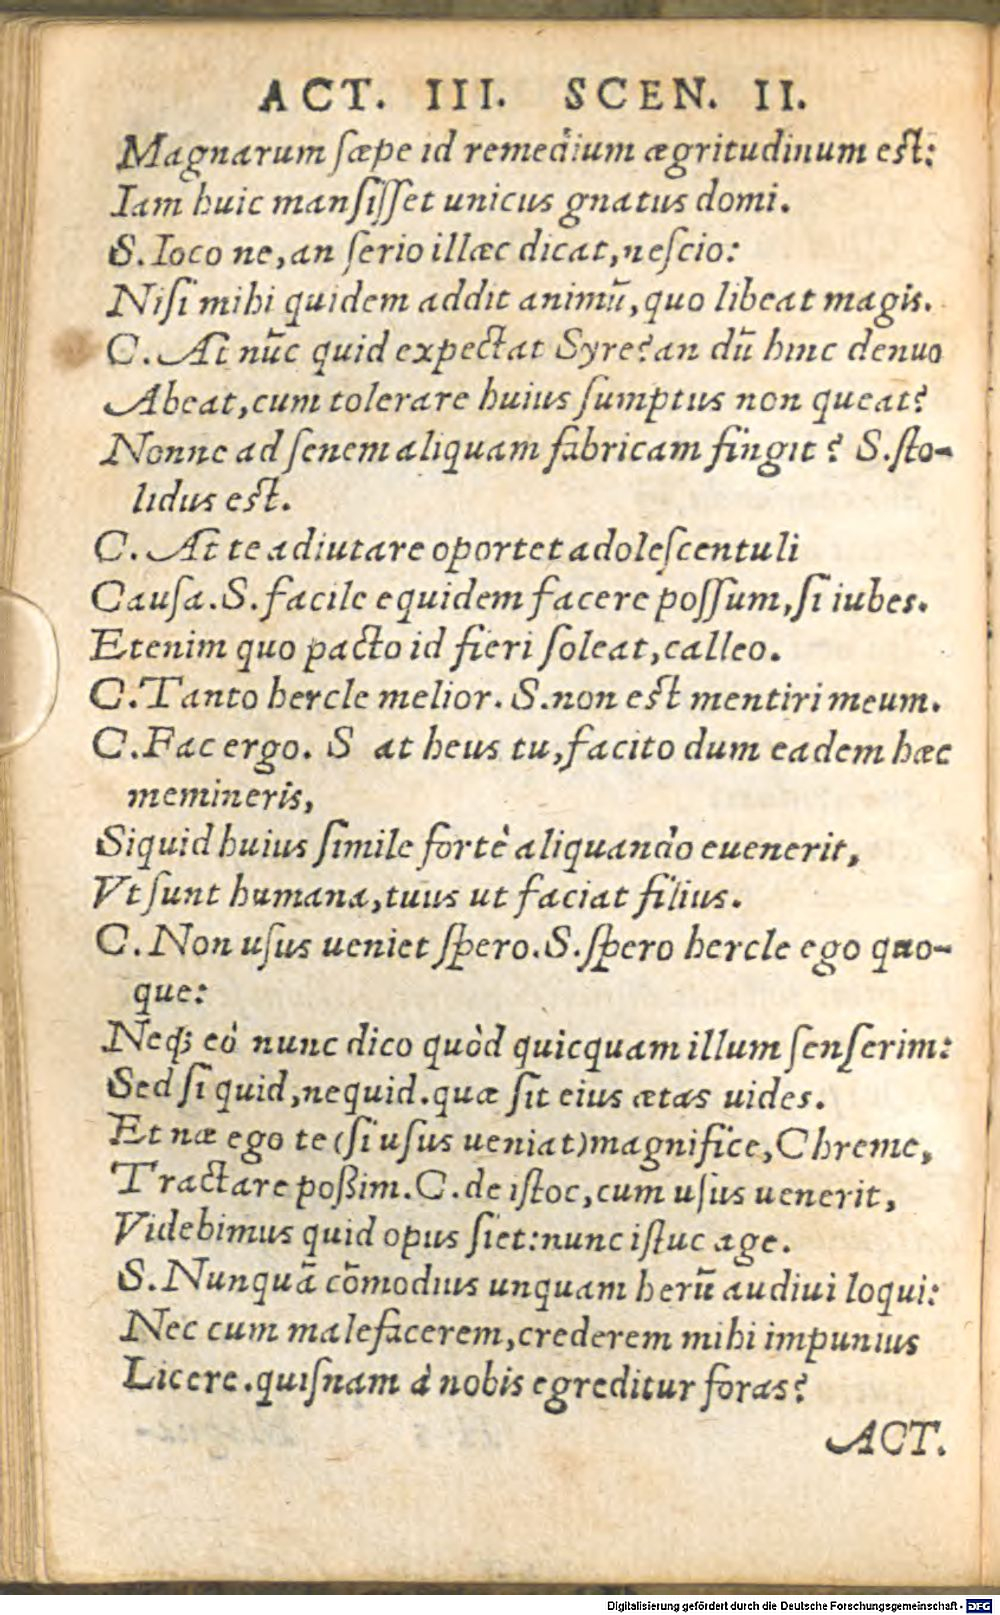 ACT. III. SCEN. II.
Magnarum sæpe id remedium ægritudinum est:
Iam huic mansisset unicus gnatus domi.
S. Ioco ne, an serio illæc dicat, nescio:
Nisi mihi quidem addit animū, quo libeat magis.
C. At nūc quid expectat Syre? an dū hinc denuo
Abeat, cum tolerare huius sumptus non queat?
Nonne ad senem aliquam fabricam fingit? S. sto-
lidus est.
C. At te adiutare oportet adolescentuli
Causa. S. facile equidem facere possum, si iubes.
Etenim quo pacto id fieri soleat, calleo.
C. Tanto hercle melior. S. non est mentiri meum.
C. Fac ergo. S at heus tu, facito dum eadem hæc
memineris,
Siquid huius simile fortè aliquando euenerit,
Vt sunt humana, tuus ut faciat filius.
C. Non usus ueniet spero. S. spero hercle ego quo-
que:
Neq; eò nunc dico quòd quicquam illum senserim:
Sed si quid, nequid. quæ sit eius ætas uides.
Et næ ego te (si usus ueniat) magnifice, Chreme,
Tractare poßim. C. de istoc, cum usus uenerit,
Videbimus quid opus siet: nunc istuc age.
S. Nunquā cōmodius unquam herū audiui loqui:
Nec cum malefacerem, crederem mihi impunius
Licere. quisnam à nobis egreditur foras?
ACT.
Digitalisierung gefördert durch die Deutsche Forschungsgemeinschaft - DFG